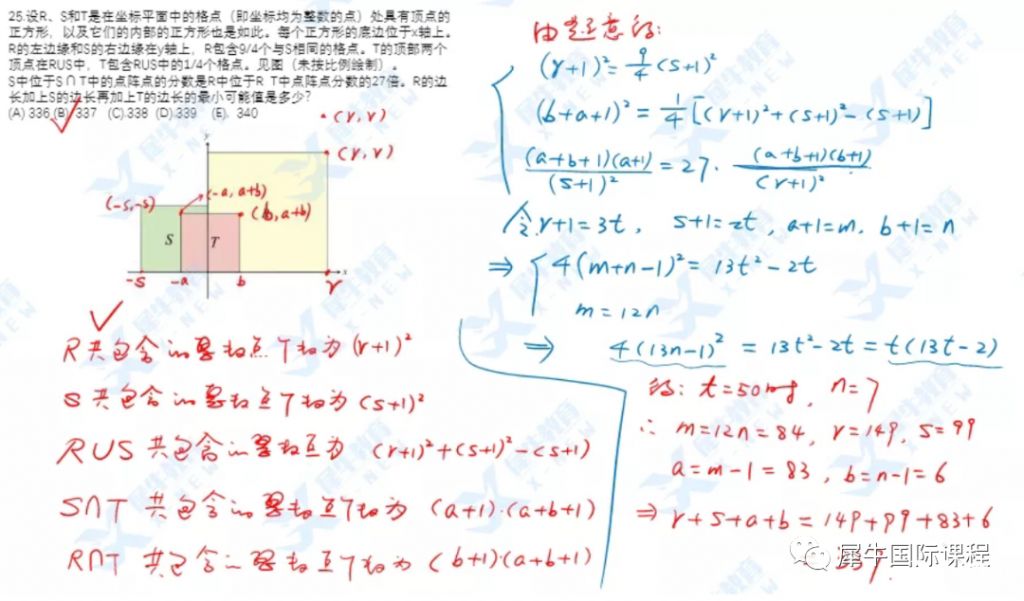 25.设R、S和T是在坐标平面中的格点（即坐标均为整数的点）处具有顶点的
正方形，以及它们的内部的正方形也是如此。每个正方形的底边位于x轴上。
R的左边缘和S的右边缘在y轴上，R包含9/4个与S相同的格点。T的顶部两个
顶点在RUS中，T包含RUS中的1/4个格点。见图（未按比例绘制）。
S中位于S∩T中的点阵点的分数是R中位于R T中点阵点分数的27倍。R的边
长加上S的边长再加上T的边长的最小可能值是多少？
(A) 336 (B) 337 (C).338 (D).339 (E). 340
(r,r)
y
(r,r)
(-a, a+b)
(-s,-s)
(b,a+b)
S
T
x
-s
-a
b
r
R共包含的整数点个数为(r+1)²
S共包含的整数点个数为(s+1)²
RUS共包含的整数点为 (r+1)²+(s+1)²-(s+1)
S∩T共包含的整数点个数为 (a+1)·(a+b+1)
R∩T共包含的整数点个数为 (b+1)(a+b+1)
由题意得:
(r+1)²=9/4(s+1)²
(b+a+1)²=1/4[(r+1)²+(s+1)²-(s+1)]
(a+b+1)(a+1)/(s+1)²=27·(a+b+1)(b+1)/(r+1)²
令r+1=3t, s+1=2t, a+1=m. b+1=n
⇒ 4(m+n-1)²=13t²-2t
m=12n
⇒ 4(13n-1)²=13t²-2t=t(13t-2)
得: t=50时, n=7
∴ m=12n=84, r=149, s=99
a=m-1=83, b=n-1=6
⇒ r+s+a+b=149+99+83+6
犀牛国际课程
犀牛教育
X-NEW